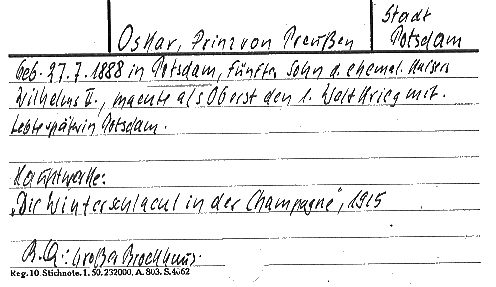 Oskar, Prinz von Preußen
Stadt
Potsdam
Geb. 27.7.1888 in Potsdam, fünfter Sohn d. ehemal. Kaisers
Wilhelms II., machte als Oberst den 1. Weltkrieg mit.
Lebte später in Potsdam.
Hauptwerke:
"Die Winterschlacht in der Champagne", 1915
B.Q.: Großer Brockhaus.
Reg. 10. Stichnote. 1. 50. 232000, A. 803. S. 4062